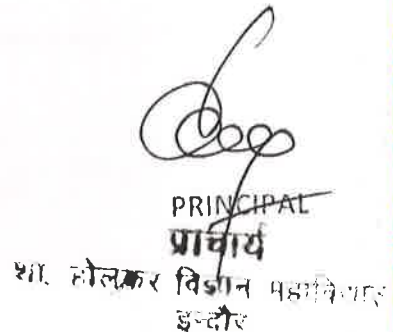 PRINCIPAL
प्राचार्य
शा. होलकर विज्ञान महाविद्यालय
इन्दौर